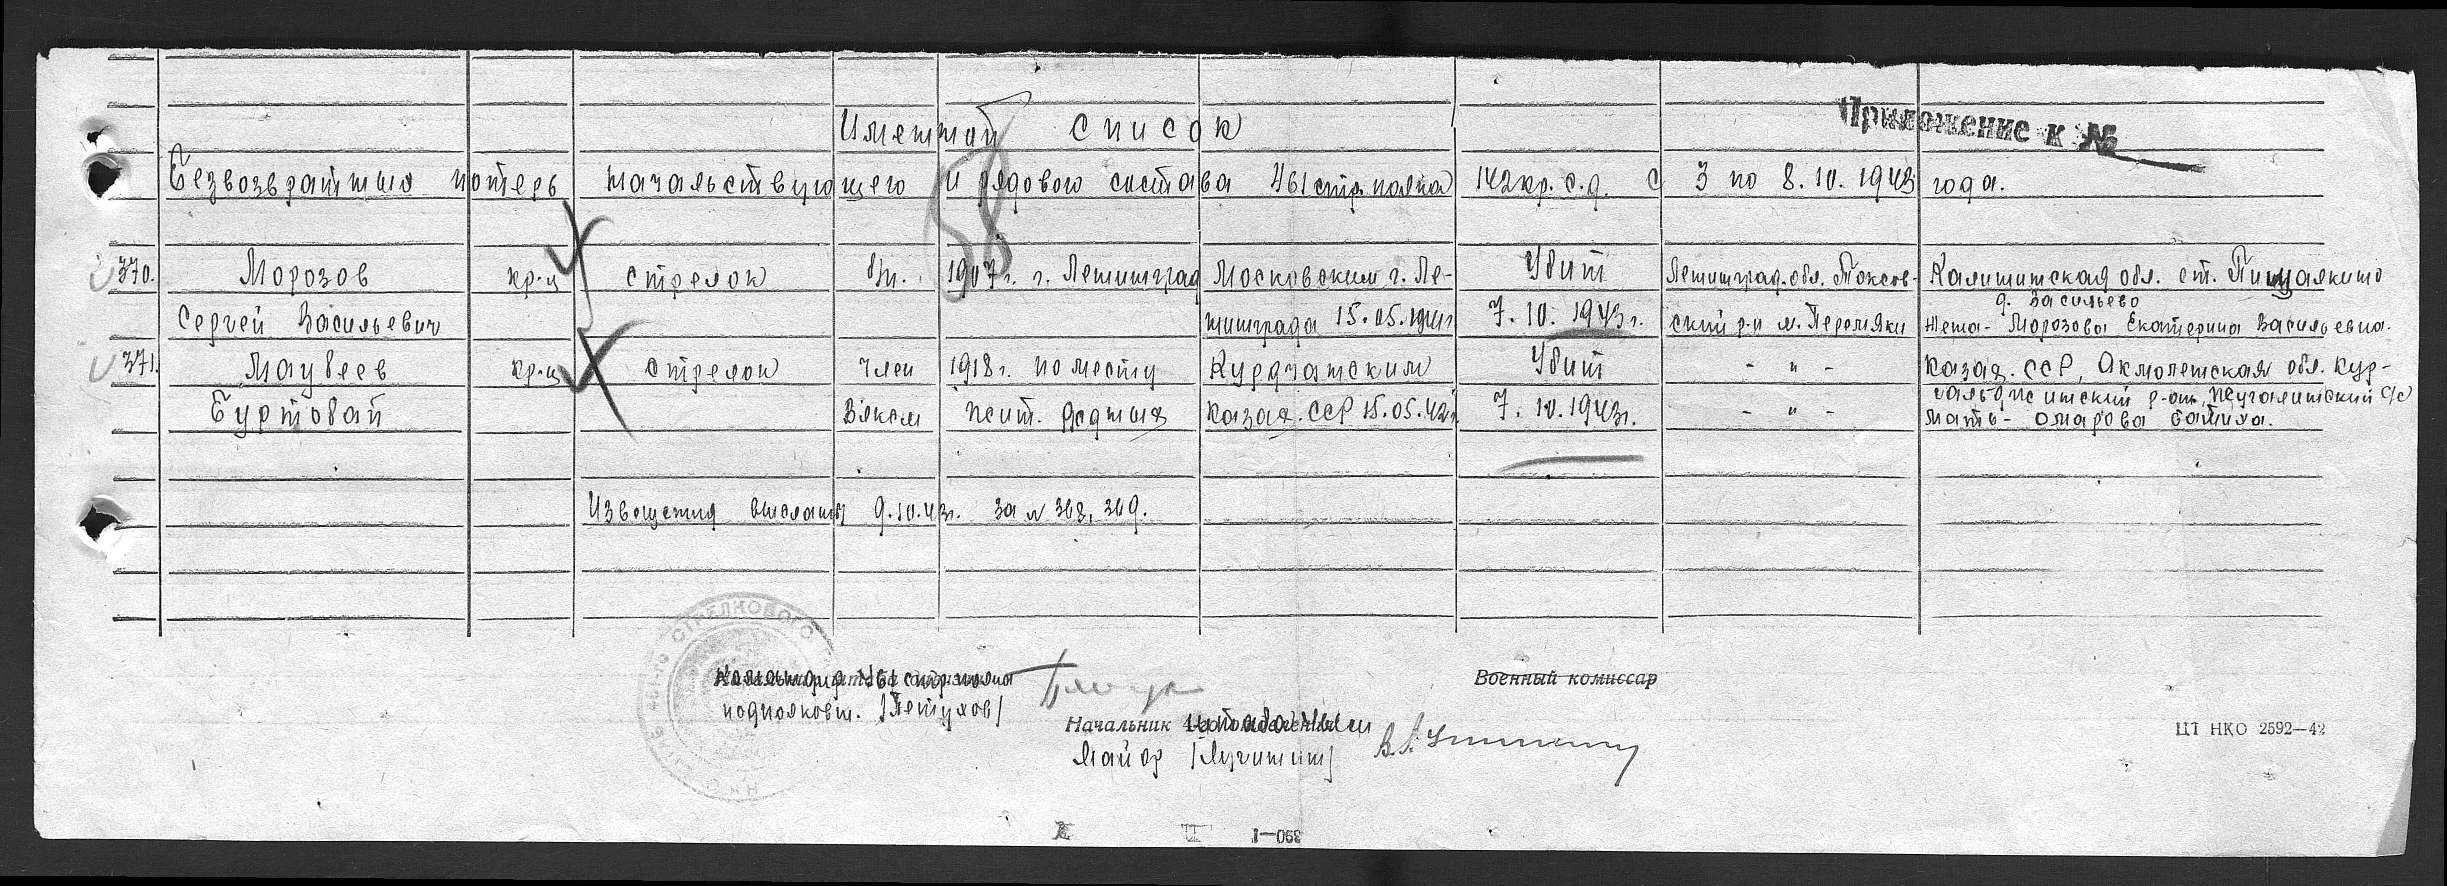 Приложение к №
Именной список
58
Безвозвратных потерь начальствующего и рядового состава 461 стр. полка 142 кр. с.д. С 3 по 8.10.1943 года.
370. Морозов кр-ц стрелок б/п. 1907 г. г. Ленинград Московским г. Ле- Убит Ленинград. обл. Токсов- Калининская обл. ст.
д. Васильево
Сергей Васильевич нинграда 15.05.1941г 7.10.1943г. ский р-н Жена- Морозова Екатерина Васильевна.
371. кр-ц стрелок член 1918г. по месту Курдчатским Убит - " - Казах. ССР, Акмолинская обл. Кур-
Буртовай Влксм жит. родных Казах. ССР 15.05.42г. 7.10.1943г. - " - с/с
мать- Омарова Батиха.
Извещения высланы 9.10.43г. за № 368, 369.
СТРЕЛКОВОГО
Командир 461 стр. полка
подполковн. /Петухов/
Военный комиссар
Начальник штаба 461 сп
Майор /Лучинин/
ЦТ НКО 2592—42
390—1